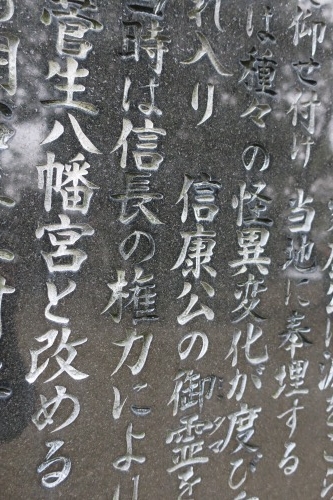 御せ付け 当地に奉埋する
は種々の怪異変化が度び
れ入り 信康公の御霊を
時は信長の権力により
菅生八幡宮と改める